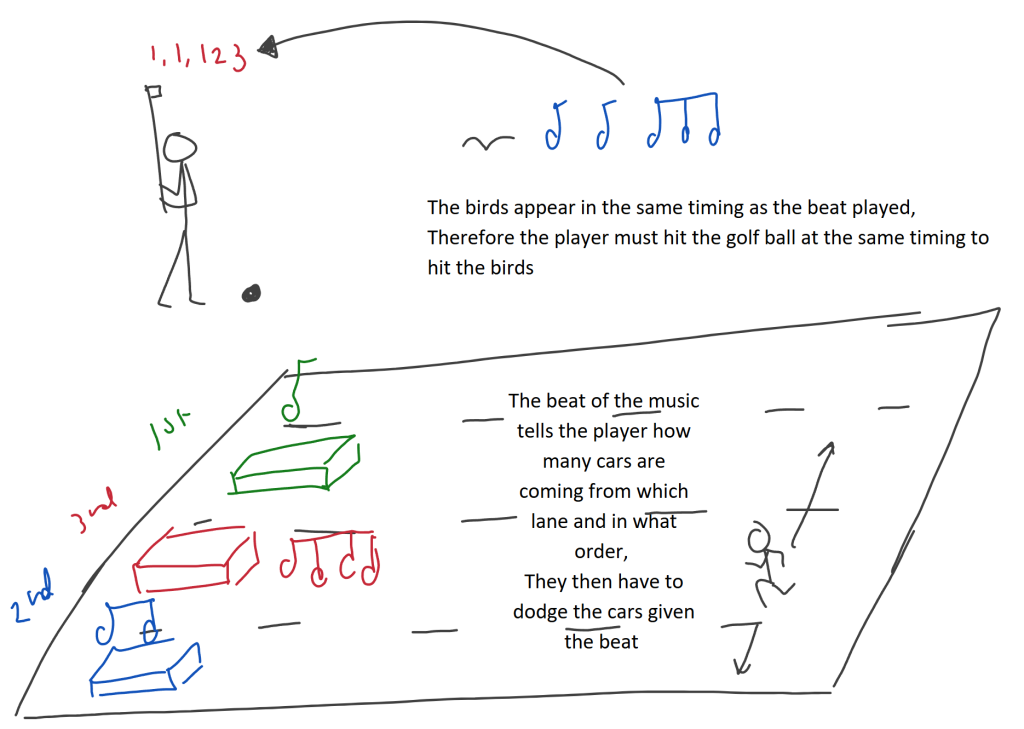 1, 1, 1 2 3
The birds appear in the same timing as the beat played,
Therefore the player must hit the golf ball at the same timing to
hit the birds
1st
3rd
2nd
The beat of the music
tells the player how
many cars are
coming from which
lane and in what
order,
They then have to
dodge the cars given
the beat